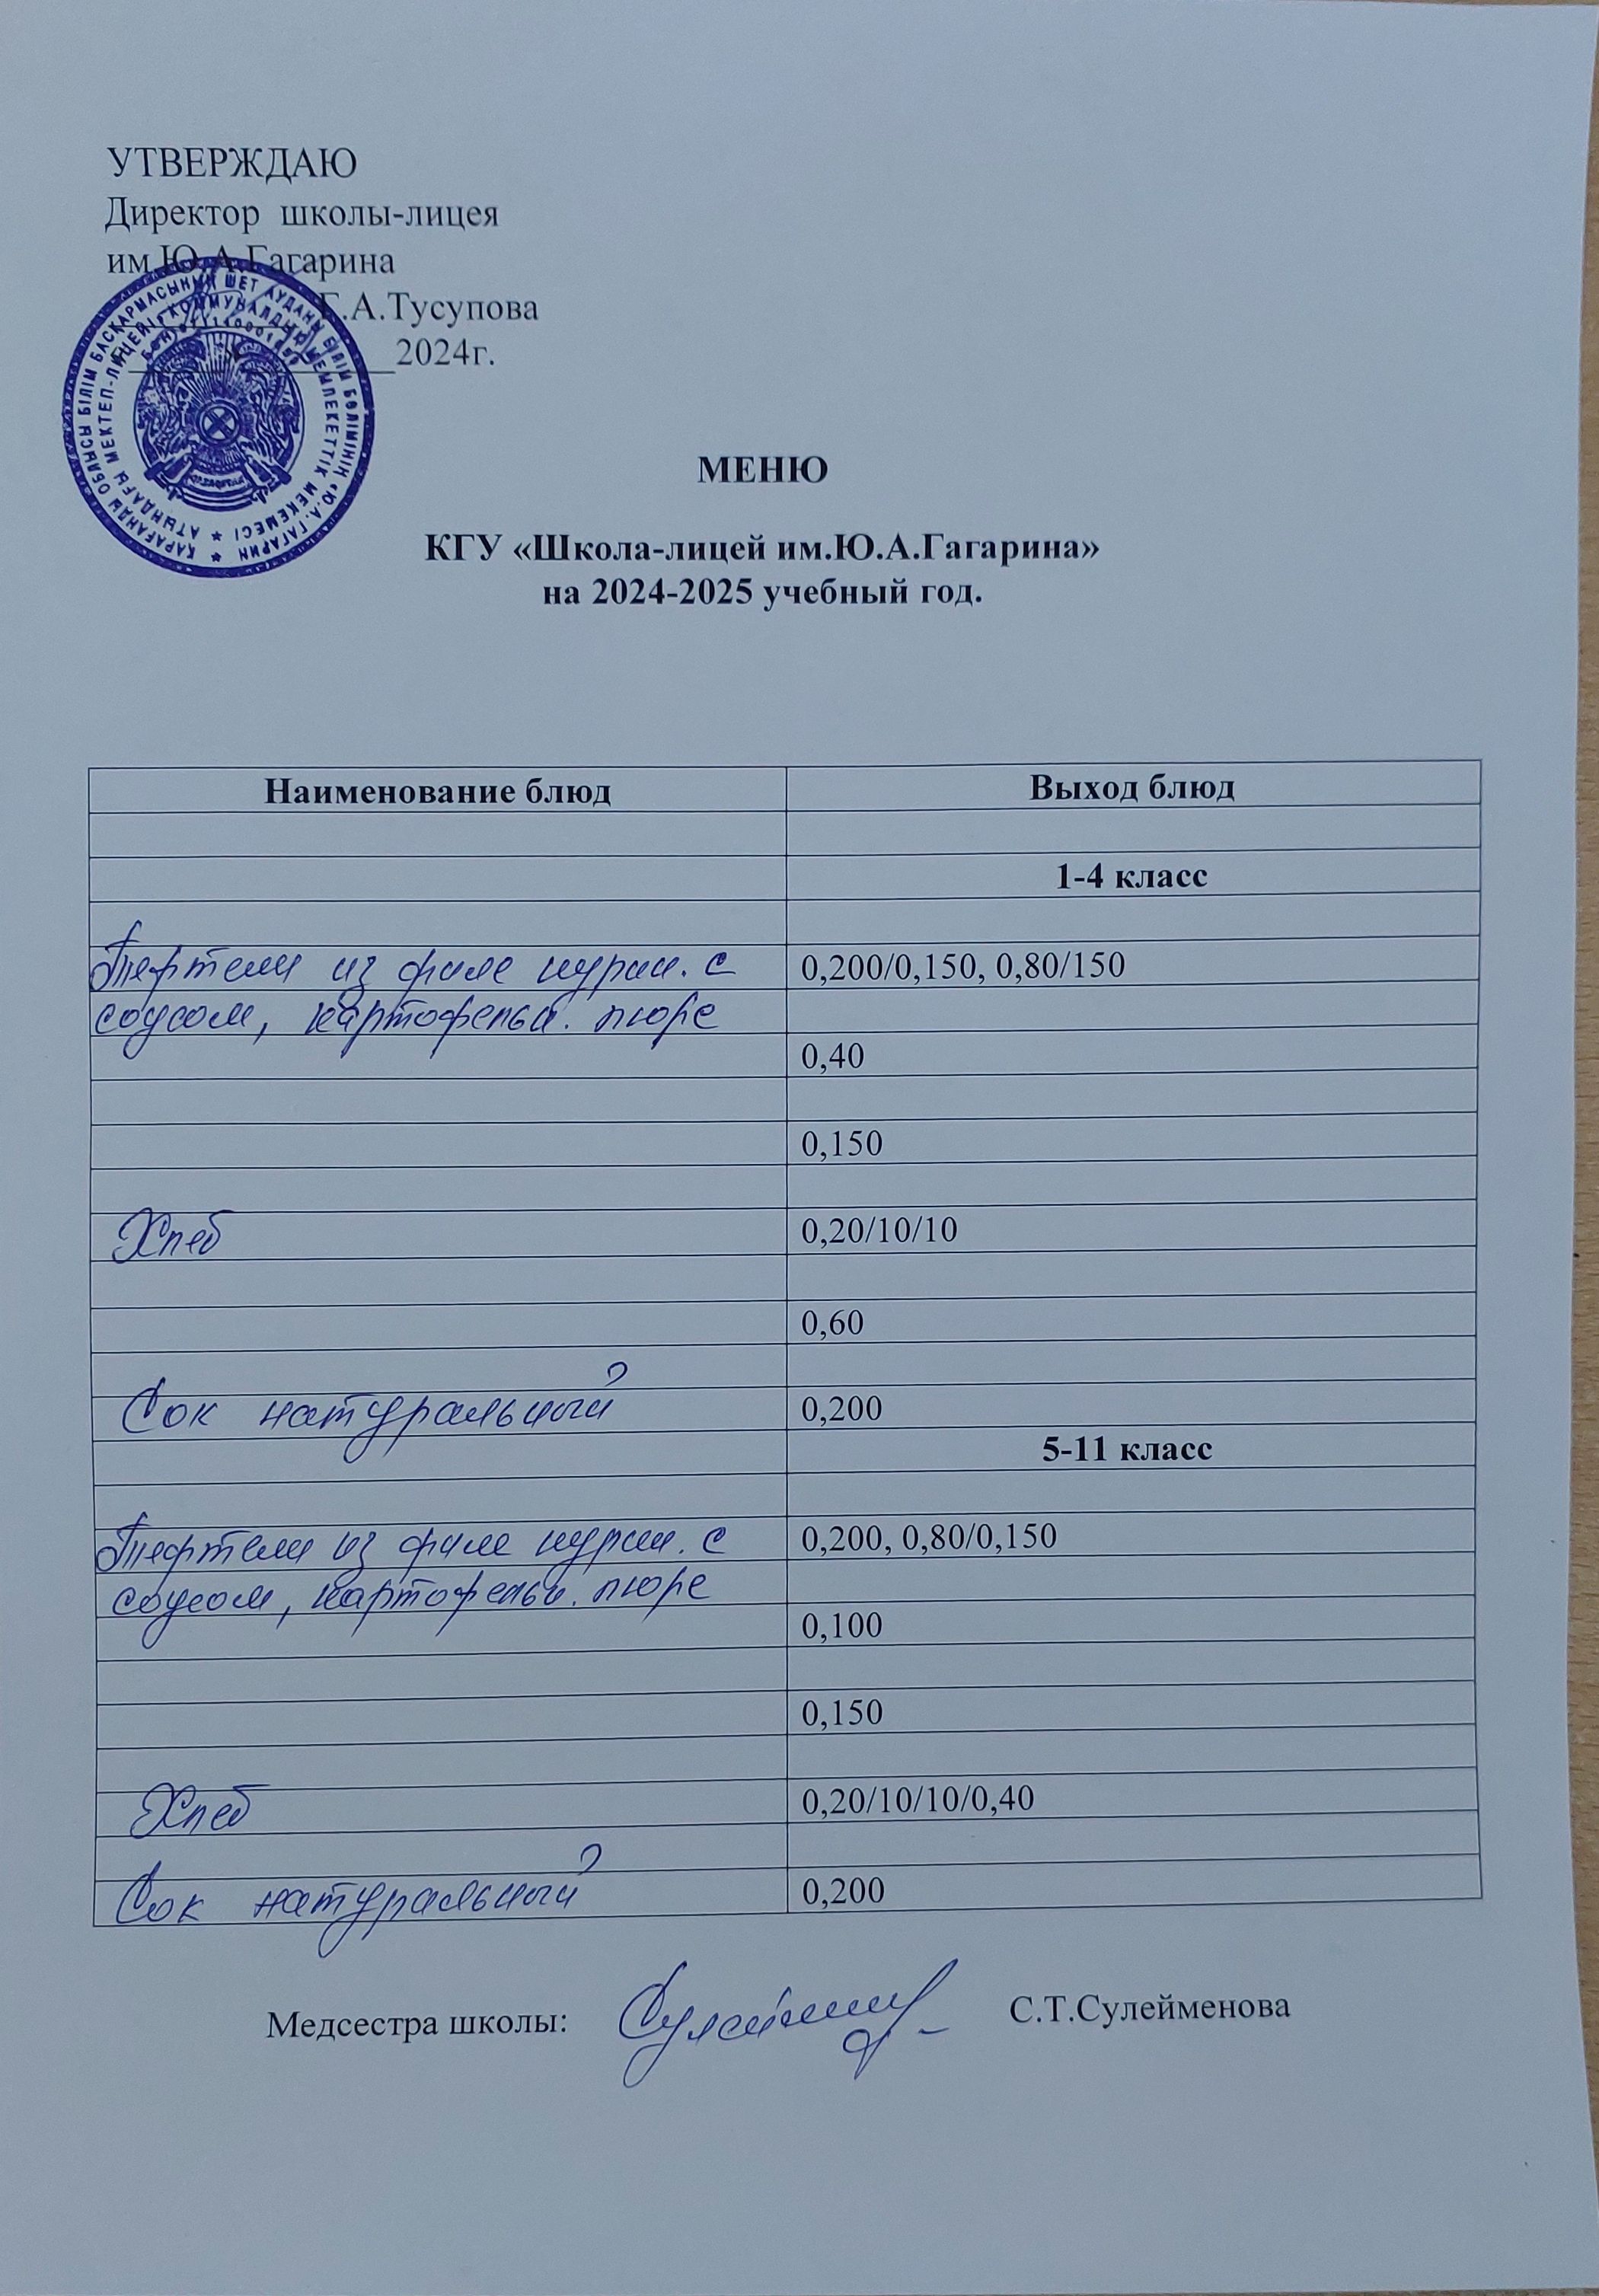 УТВЕРЖДАЮ
Директор школы-лицея
им.Ю.А.Гагарина
Г.А.Тусупова
2024г.
ҚАРАҒАНДЫ ОБЛЫСЫ БІЛІМ БАСҚАРМАСЫНЫҢ ШЕТ АУДАНЫ БІЛІМ БӨЛІМІНІҢ «Ю.А. ГАГАРИН
АТЫНДАҒЫ МЕКТЕП-ЛИЦЕЙІ» КОММУНАЛДЫҚ МЕМЛЕКЕТТІК МЕКЕМЕСІ
МЕНЮ
КГУ «Школа-лицей им.Ю.А.Гагарина»
на 2024-2025 учебный год.
Наименование блюд Выход блюд
1-4 класс
Тефтели из филе курин. с 0,200/0,150, 0,80/150
соусом, картофельн. пюре
0,40
0,150
Хлеб 0,20/10/10
0,60
Сок натуральный 0,200
5-11 класс
Тефтели из филе курин. с 0,200, 0,80/0,150
соусом, картофельн. пюре
0,100
0,150
Хлеб 0,20/10/10/0,40
Сок натуральный 0,200
Медсестра школы: С.Т.Сулейменова